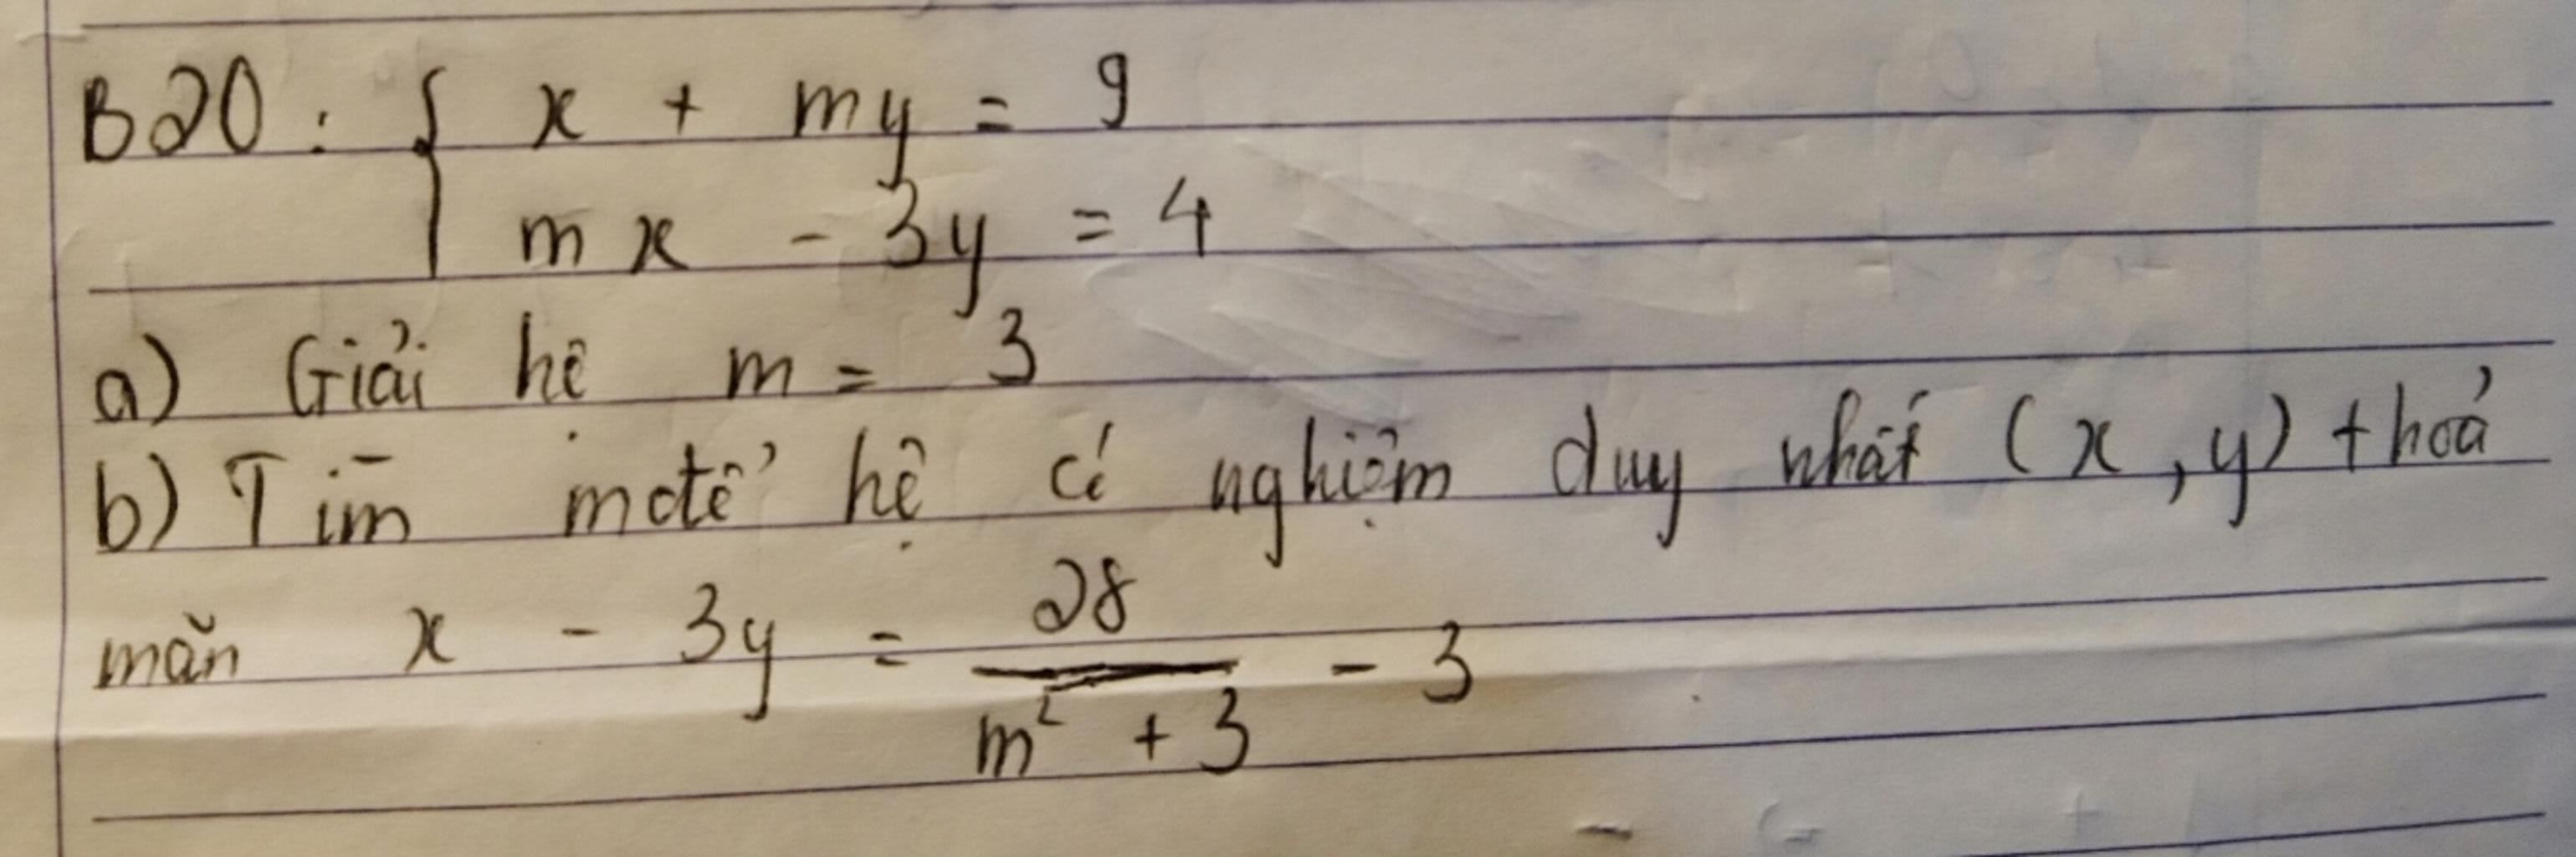 B20: { x + my = 9
mx - 3y = 4
a) Giải hê m = 3
b) Tim mđể hệ có nghiệm duy nhất (x, y) thoả
mãn x - 3y = 28/(m² + 3) - 3